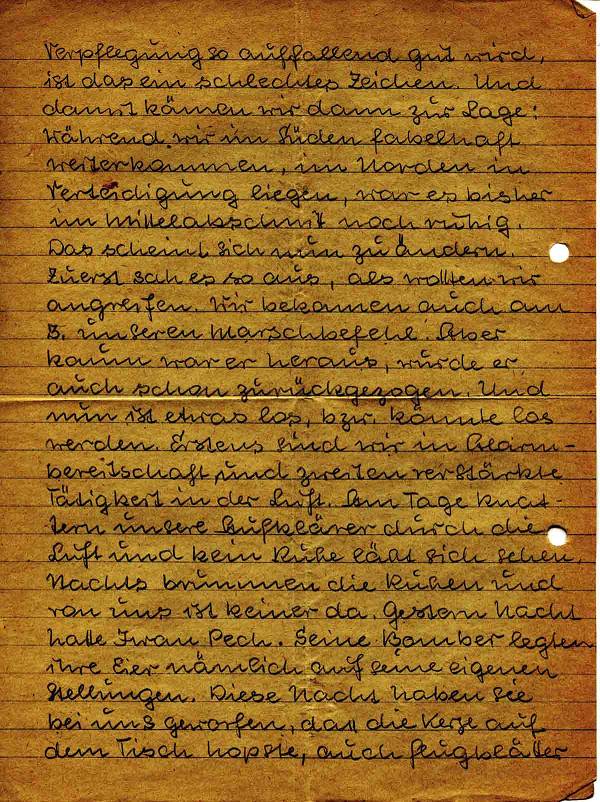 Verpflegung so auffallend gut wird,
ist das ein schlechtes Zeichen. Und
damit kämen wir dann zur Lage:
Während wir im Süden fabelhaft
weiterkommen, im Norden in
Verteidigung liegen, war es bisher
im Mittelabschnitt noch ruhig.
Das scheint sich nun zu ändern.
Zuerst sah es so aus, als wollten wir
angreifen. Wir bekamen auch am
3. unseren Marschbefehl. Aber
kaum war er heraus, wurde er
auch schon zurückgezogen. Und
nun ist etwas los, bzw. könnte los
werden. Erstens sind wir in Alarm-
bereitschaft und zweiten verstärkte
Tätigkeit in der Luft. Am Tage knat-
tern unsere Aufklärer durch die
Luft und kein Ruße läßt sich sehen.
Nachts brummen die Kühen und
von uns ist keiner da. Gestern Nacht
hatte Iwan Pech. Seine Bomber legten
ihre Eier nämlich auf seine eigenen
Stellungen. Diese Nacht haben sie
bei uns geworfen, daß die Kerze auf
dem Tisch hopste, auch Flugblätter